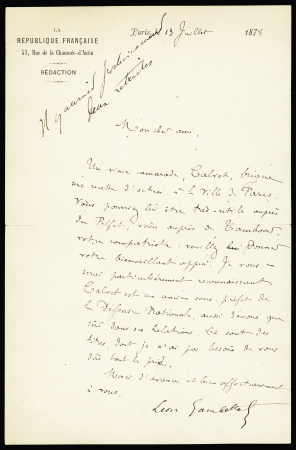 LA
RÉPUBLIQUE FRANÇAISE
53, Rue de la Chaussée-d'Antin
RÉDACTION
Paris, 13 Juillet 1878
Il y aurait justement
deux retraites
Mon cher ami,
Un vieux camarade, Calvet, brigue
une recette d'octroi à la Ville de Paris.
Vous pouvez lui être très utile auprès
du Préfet, sinon auprès de
votre compatriote : veuillez lui donner
votre bienveillant appui. Je vous en
serai particulièrement reconnaissant.
Calvet est un ancien sous-préfet de
la Défense Nationale, aussi dévoué que
sûr dans ses relations. Ce sont des
titres, dont je n'ai pas besoin de vous
dire tout le prix.
Merci d'avance et bien affectueusement
à vous.
Léon Gambetta